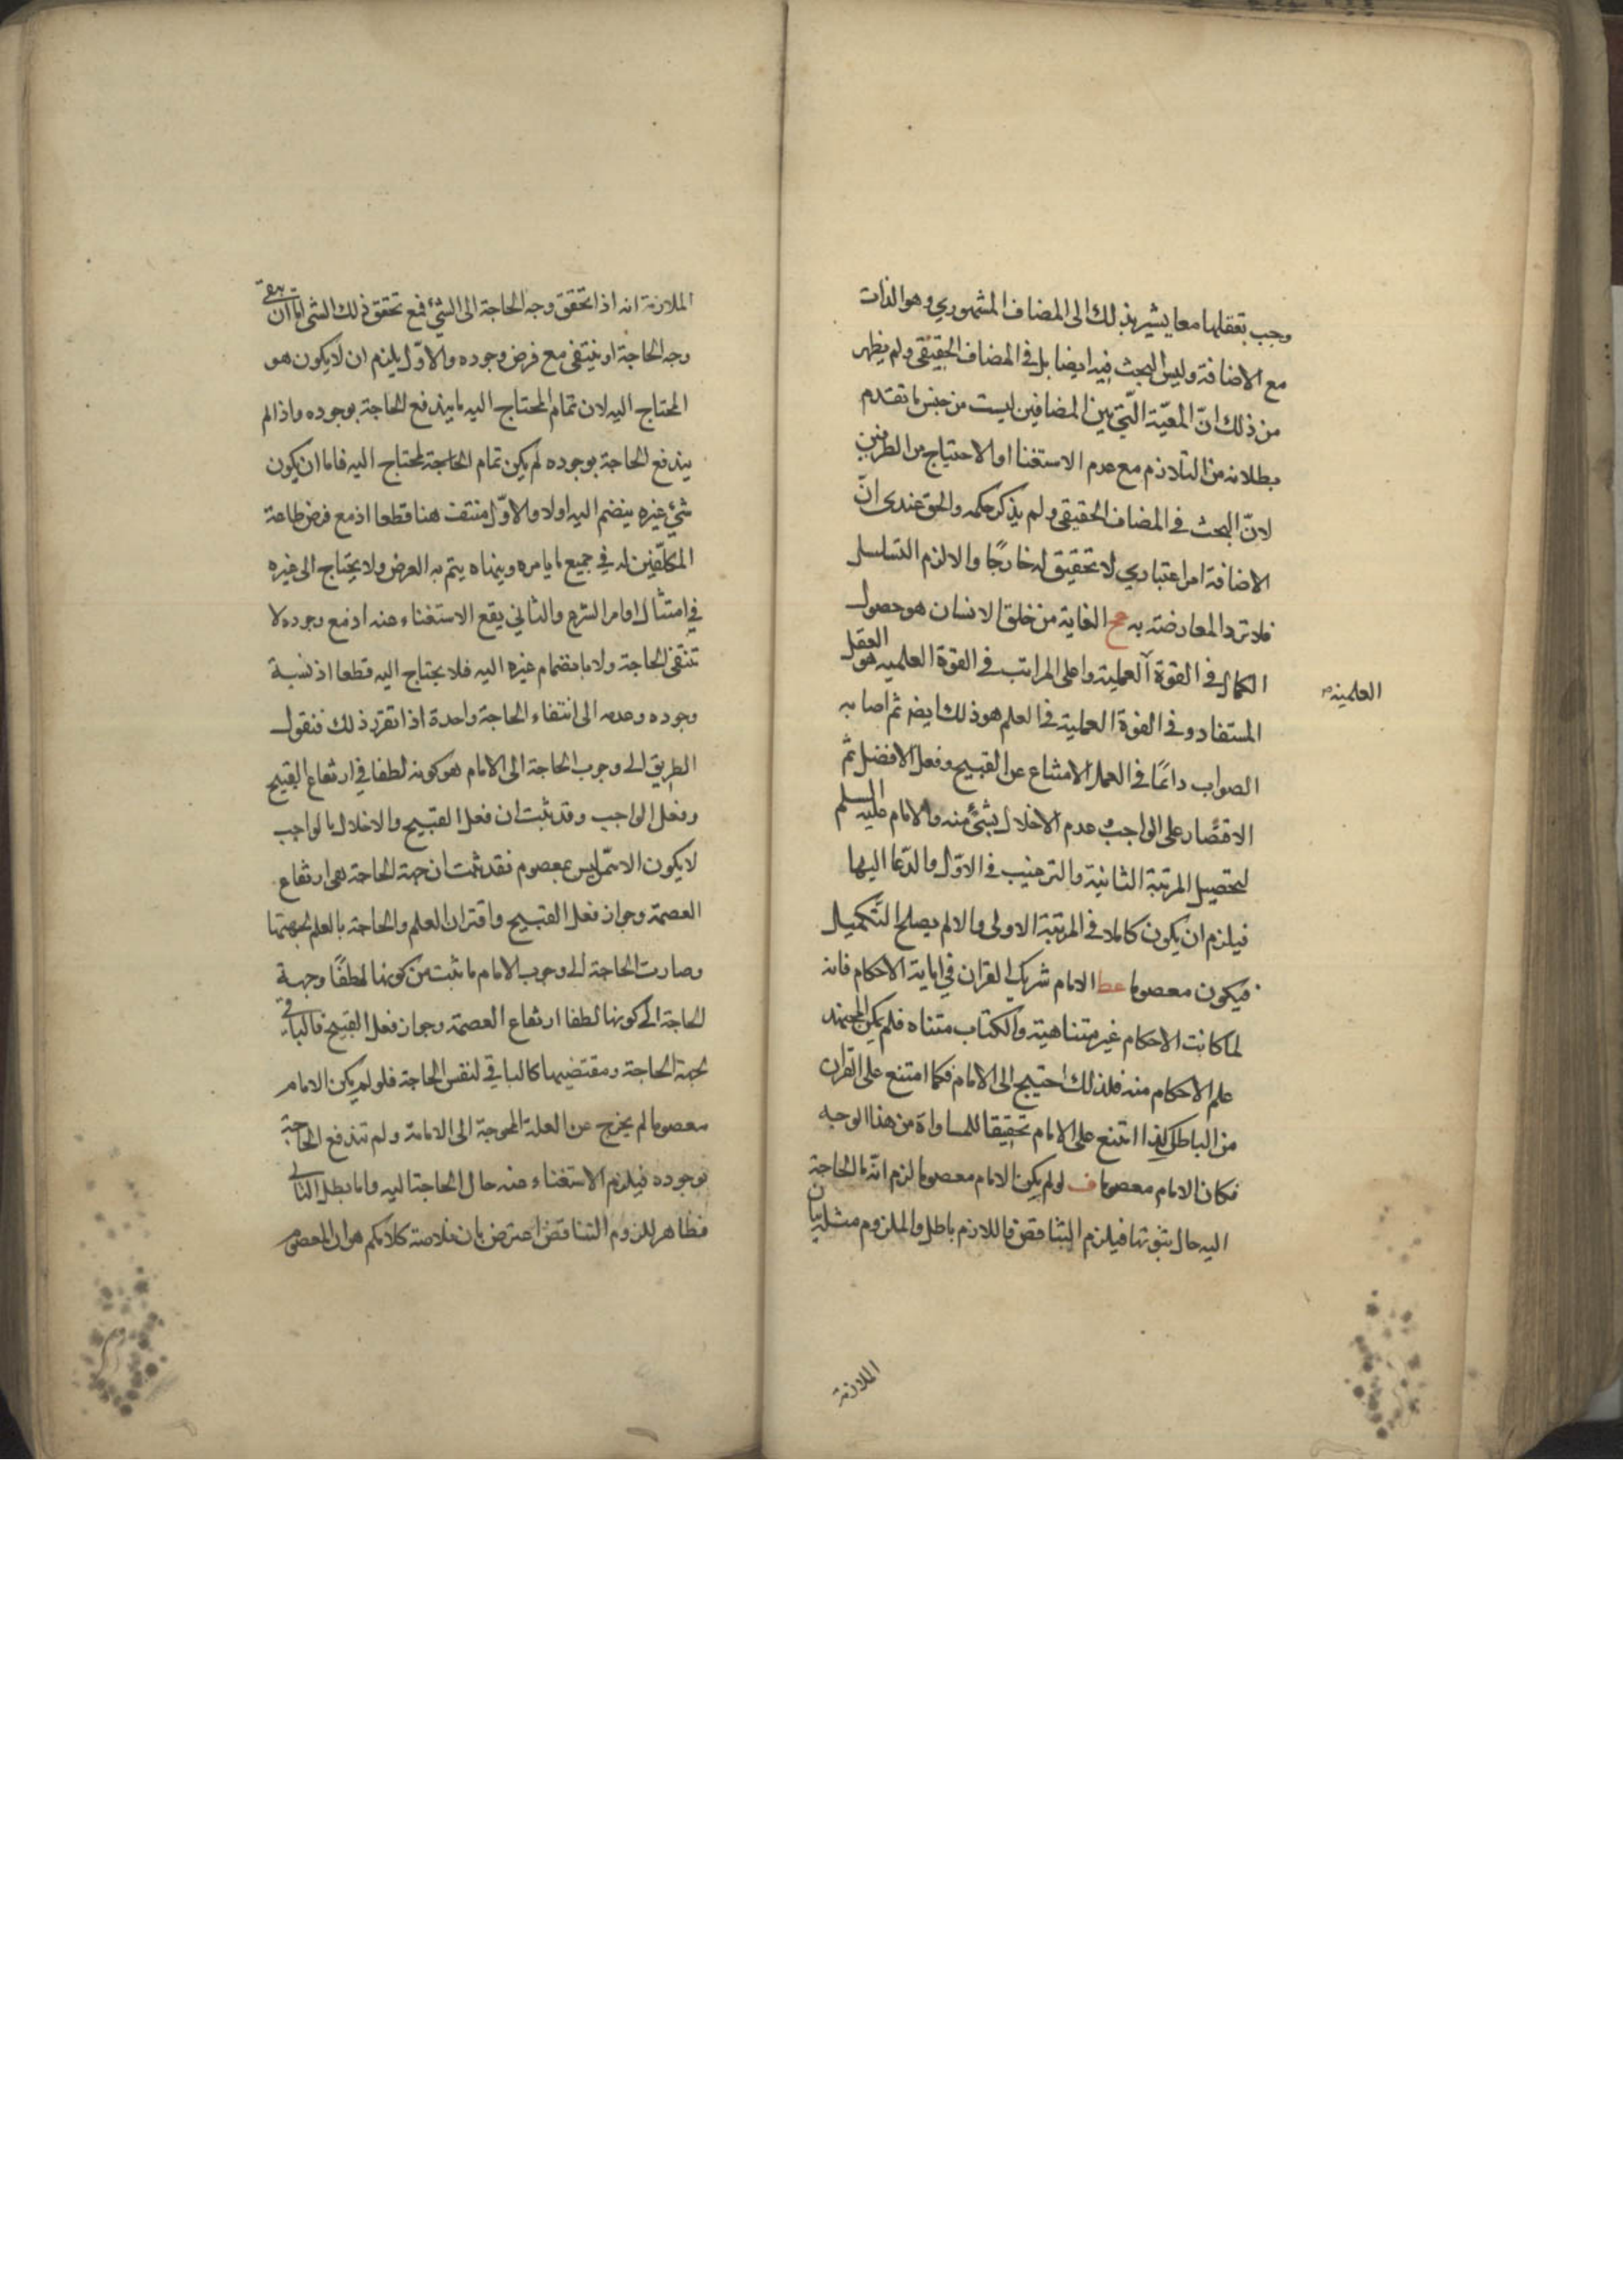 وجب تعقلهما معا يشير بذلك الى المضاف المشهوري وهو الذات
مع الاضافة وليس البحث فيه ايضا بل في المضاف الحقيقي ولم يظهر
من ذلك انّ المعيّة الّتي بين المضافين ليست من جنس ما تقدم
بطلانه من التلازم مع عدم الاستغنا او الاحتياج من الطرفين
لانّ البحث في المضاف الحقيقي ولم يذكر حكمه والحق عندى انّ
الاضافة امر اعتباري لا تحقيق له خارجًا والا لزم التسلسل
فلا ترد المعارضة به عح الغاية من خلق الانسان هو حصول
الكمال في القوة العملية واعلى المراتب في القوة العلميه هو العقل
العلميه
المستفاد وفي القوة العملية في العلم هو ذلك ايضا ثم اصابه
الصواب دائمًا في العمل الامتناع عن القبيح وفعل الافضل ثم
الاقتصار على الواجب عدم الاخلال بشئ منه والامام عليه السلم
لتحصيل المرتبة الثانية والترغيب في الاوّل والدّعا اليها
فيلزم ان يكون كاملا في المرتبة الاولى والا لم يصلح التّكميل
فيكون معصوما عط الامام شريك القران في ابانة الاحكام فانه
لما كانت الاحكام غير متناهية والكتاب متناه فلم يكن للمجتهد
علم الاحكام منه فلذلك احتيج الى الامام فكما امتنع على القران
من الباطل كذا امتنع على الامام تحقيقا للمساواة من هذا الوجه
فكان الامام معصوما ف لو لم يكن الامام معصوما لزم انتفا الحاجة
اليه حال ثبوتها فيلزم التناقض فاللازم باطل والملزوم مثله بيان
الملازمة
الملازمة انه اذا تحقق وجه الحاجة الى الشئ فمع تحقق ذلك الشى امّا ان يبقى
وجه الحاجة او ينتفى مع فرض وجوده والاوّل يلزم ان لا يكون هو
المحتاج اليه لان تمام المحتاج اليه ما يندفع الحاجة بوجوده واذا لم
يندفع الحاجة بوجوده لم يكن تمام الحاجة لمحتاج اليه فاما ان يكون
شئ غيره ينضم اليه اولا والاوّل منتف هنا قطعا اذ مع فرض طاعة
المكلّفين له في جميع ما يامره وينهاه يتم به الغرض ولا يحتاج الى غيره
في امتثال اوامر الشرع والثاني يقع الاستغناء عنه اذ مع وجوده لا
تنتفى الحاجة ولا بانضمام غيره اليه فلا يحتاج اليه قطعا اذ نسبة
وجوده وعدمه الى انتفاء الحاجة واحدة اذا تقرر ذلك فنقول
الطريق الى وجوب الحاجة الى الامام هو كونه لطفا في ارتفاع القبيح
وفعل الواجب وقد ثبت ان فعل القبيح والاخلال بالواجب
لا يكون الا ممّن ليس بمعصوم فقد ثبت ان جهة الحاجة هى ارتفاع
العصمة وجواز فعل القبيح واقتران العلم والحاجة بالعلم بجهتها
وصارت الحاجة الى وجوب الامام ما ثبت من كونها لطفًا وجهة
الحاجة الى كونها لطفا ارتفاع العصمة وجواز فعل القبيح فالباقى
لجهة الحاجة ومقتضيها كالباقي لنفس الحاجة فلو لم يكن الامام
معصوما لم يخرج عن العلة المحوجة الى الامامة ولم تندفع الحاجة
بوجوده فيلزم الاستغناء عنه حال الحاجة اليه واما بطل التالى
فظاهر للزوم التناقض اعترض بان خلاصة كلامكم هو ان المعصوم